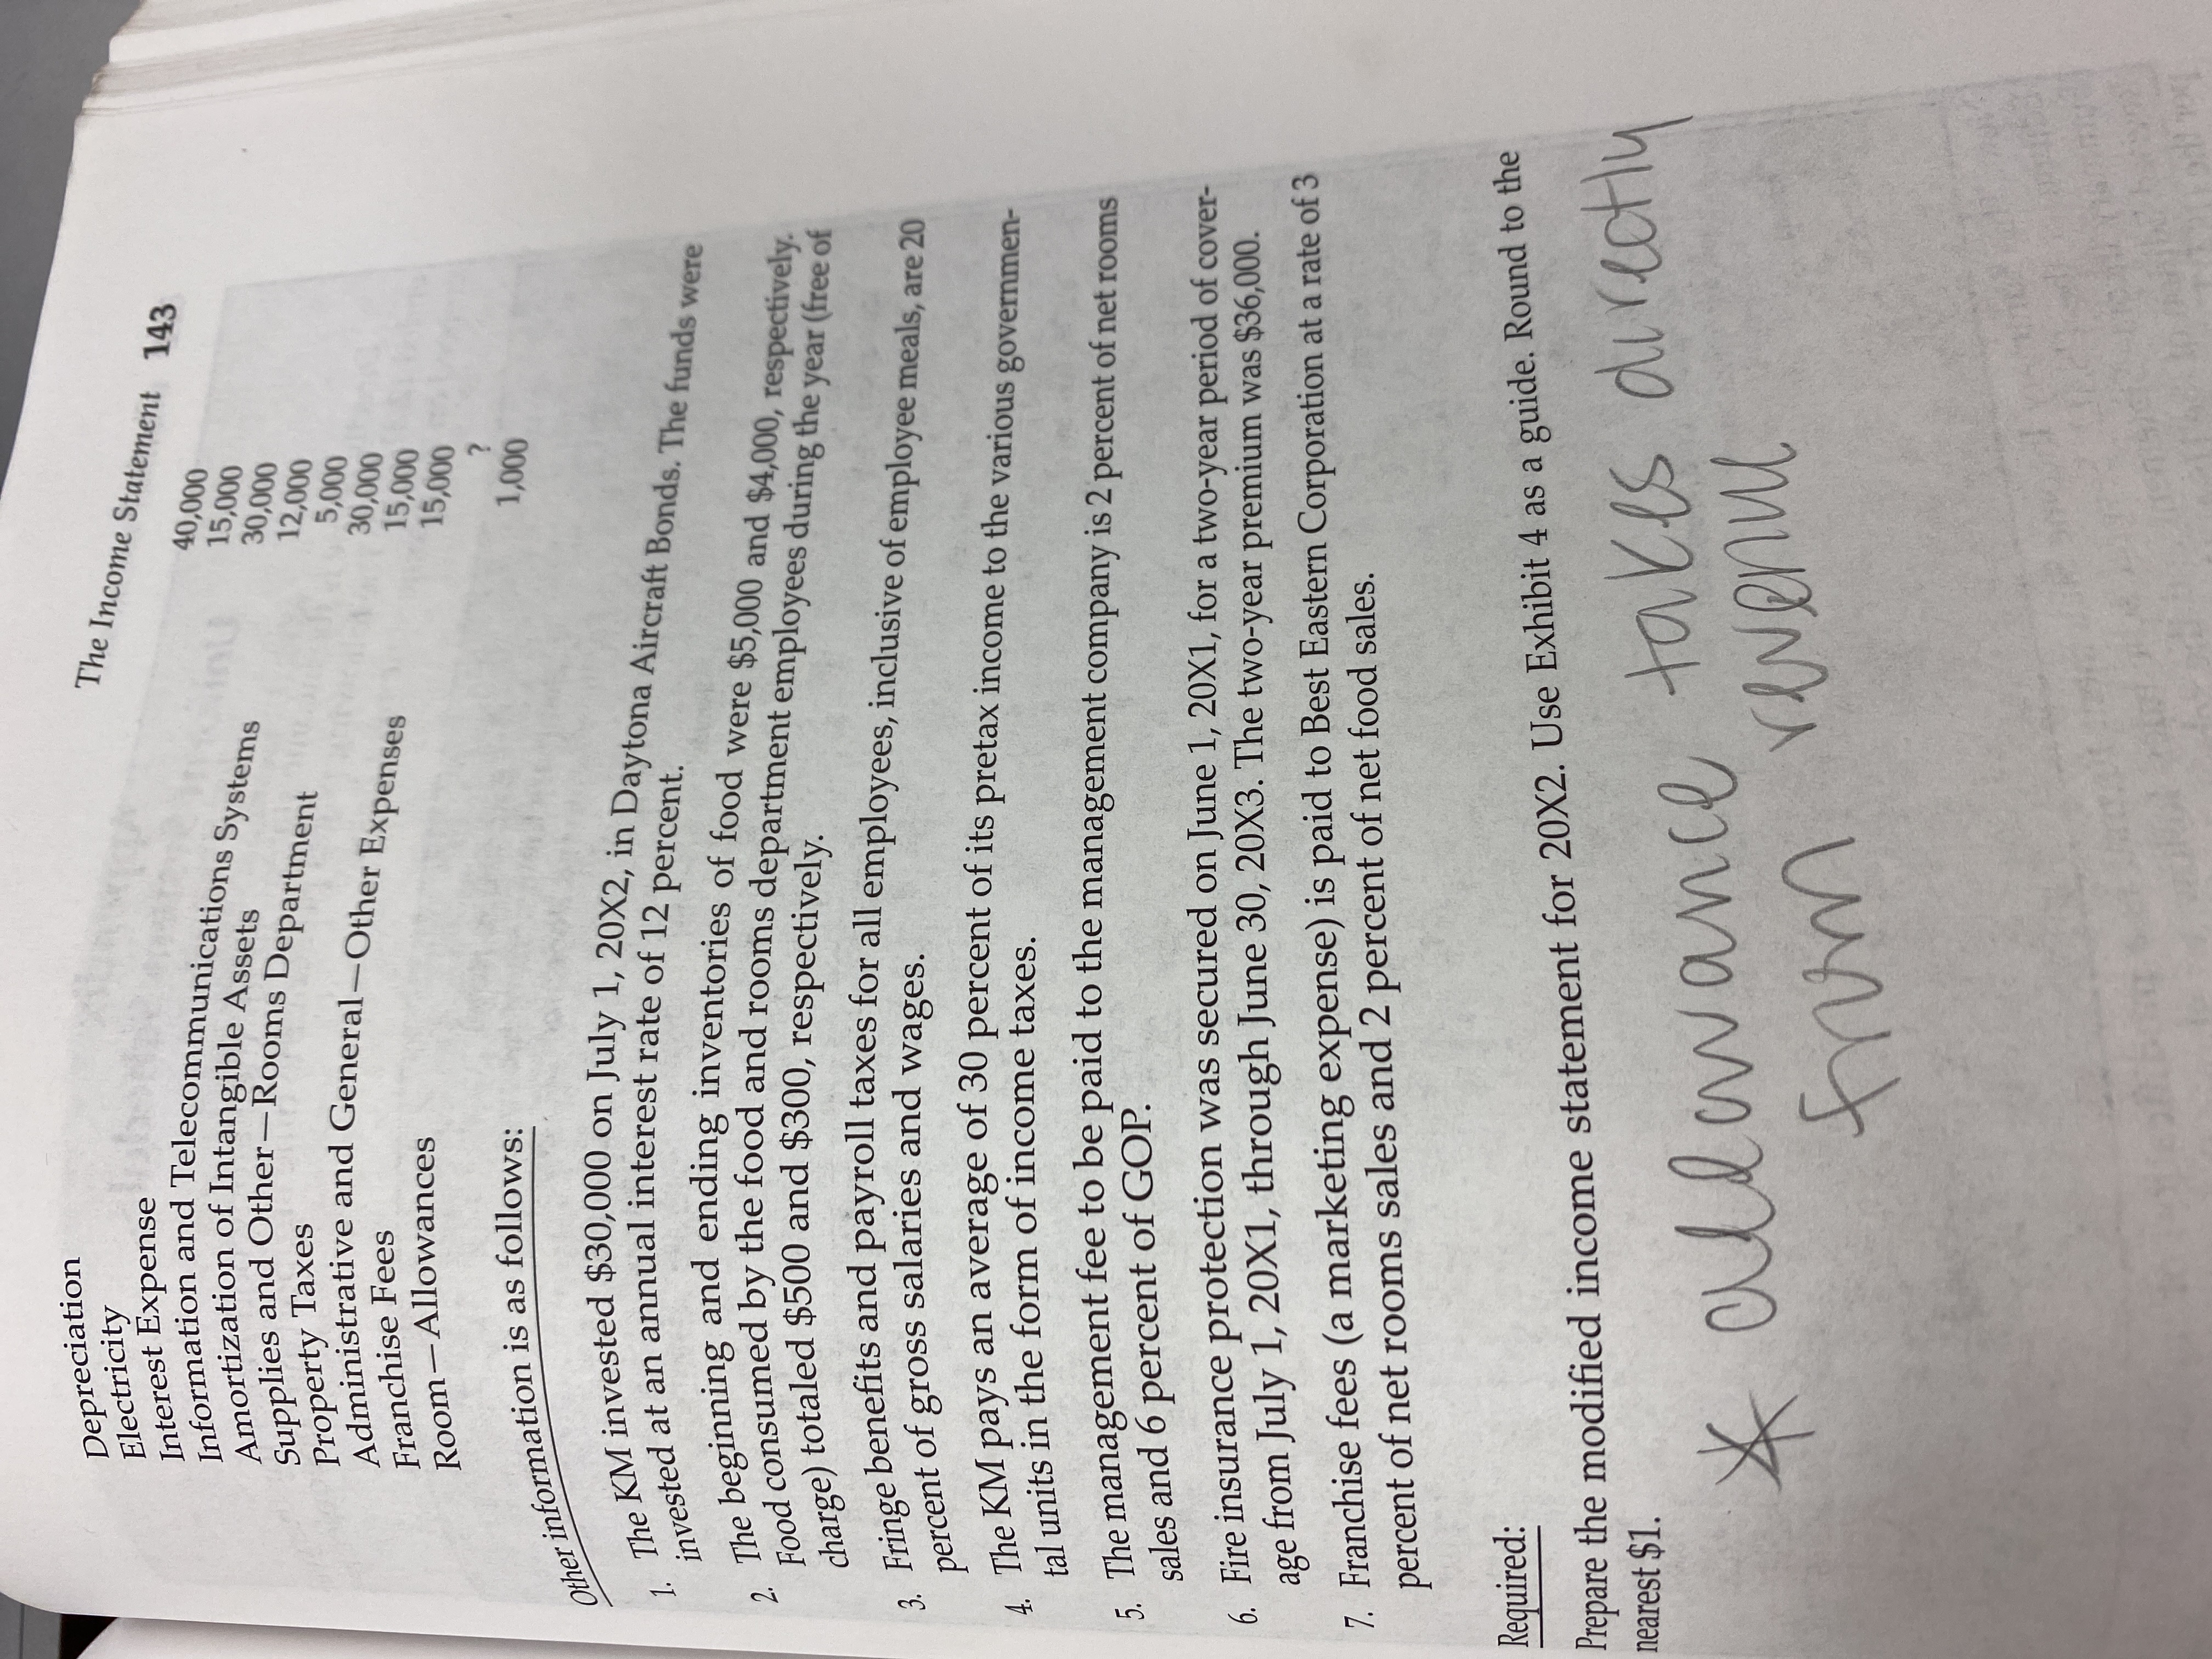 The Income Statement 143
Depreciation 40,000
Electricity 15,000
Interest Expense 30,000
Information and Telecommunications Systems 12,000
Amortization of Intangible Assets 5,000
Supplies and Other—Rooms Department 30,000
Property Taxes 15,000
Administrative and General—Other Expenses 15,000
Franchise Fees ?
Room—Allowances 1,000
Other information is as follows:
1. The KM invested $30,000 on July 1, 20X2, in Daytona Aircraft Bonds. The funds were
invested at an annual interest rate of 12 percent.
2. The beginning and ending inventories of food were $5,000 and $4,000, respectively.
Food consumed by the food and rooms department employees during the year (free of
charge) totaled $500 and $300, respectively.
3. Fringe benefits and payroll taxes for all employees, inclusive of employee meals, are 20
percent of gross salaries and wages.
4. The KM pays an average of 30 percent of its pretax income to the various governmen-
tal units in the form of income taxes.
5. The management fee to be paid to the management company is 2 percent of net rooms
sales and 6 percent of GOP.
6. Fire insurance protection was secured on June 1, 20X1, for a two-year period of cover-
age from July 1, 20X1, through June 30, 20X3. The two-year premium was $36,000.
7. Franchise fees (a marketing expense) is paid to Best Eastern Corporation at a rate of 3
percent of net rooms sales and 2 percent of net food sales.
Required:
Prepare the modified income statement for 20X2. Use Exhibit 4 as a guide. Round to the
nearest $1.
* allowance takes directly
from revenue